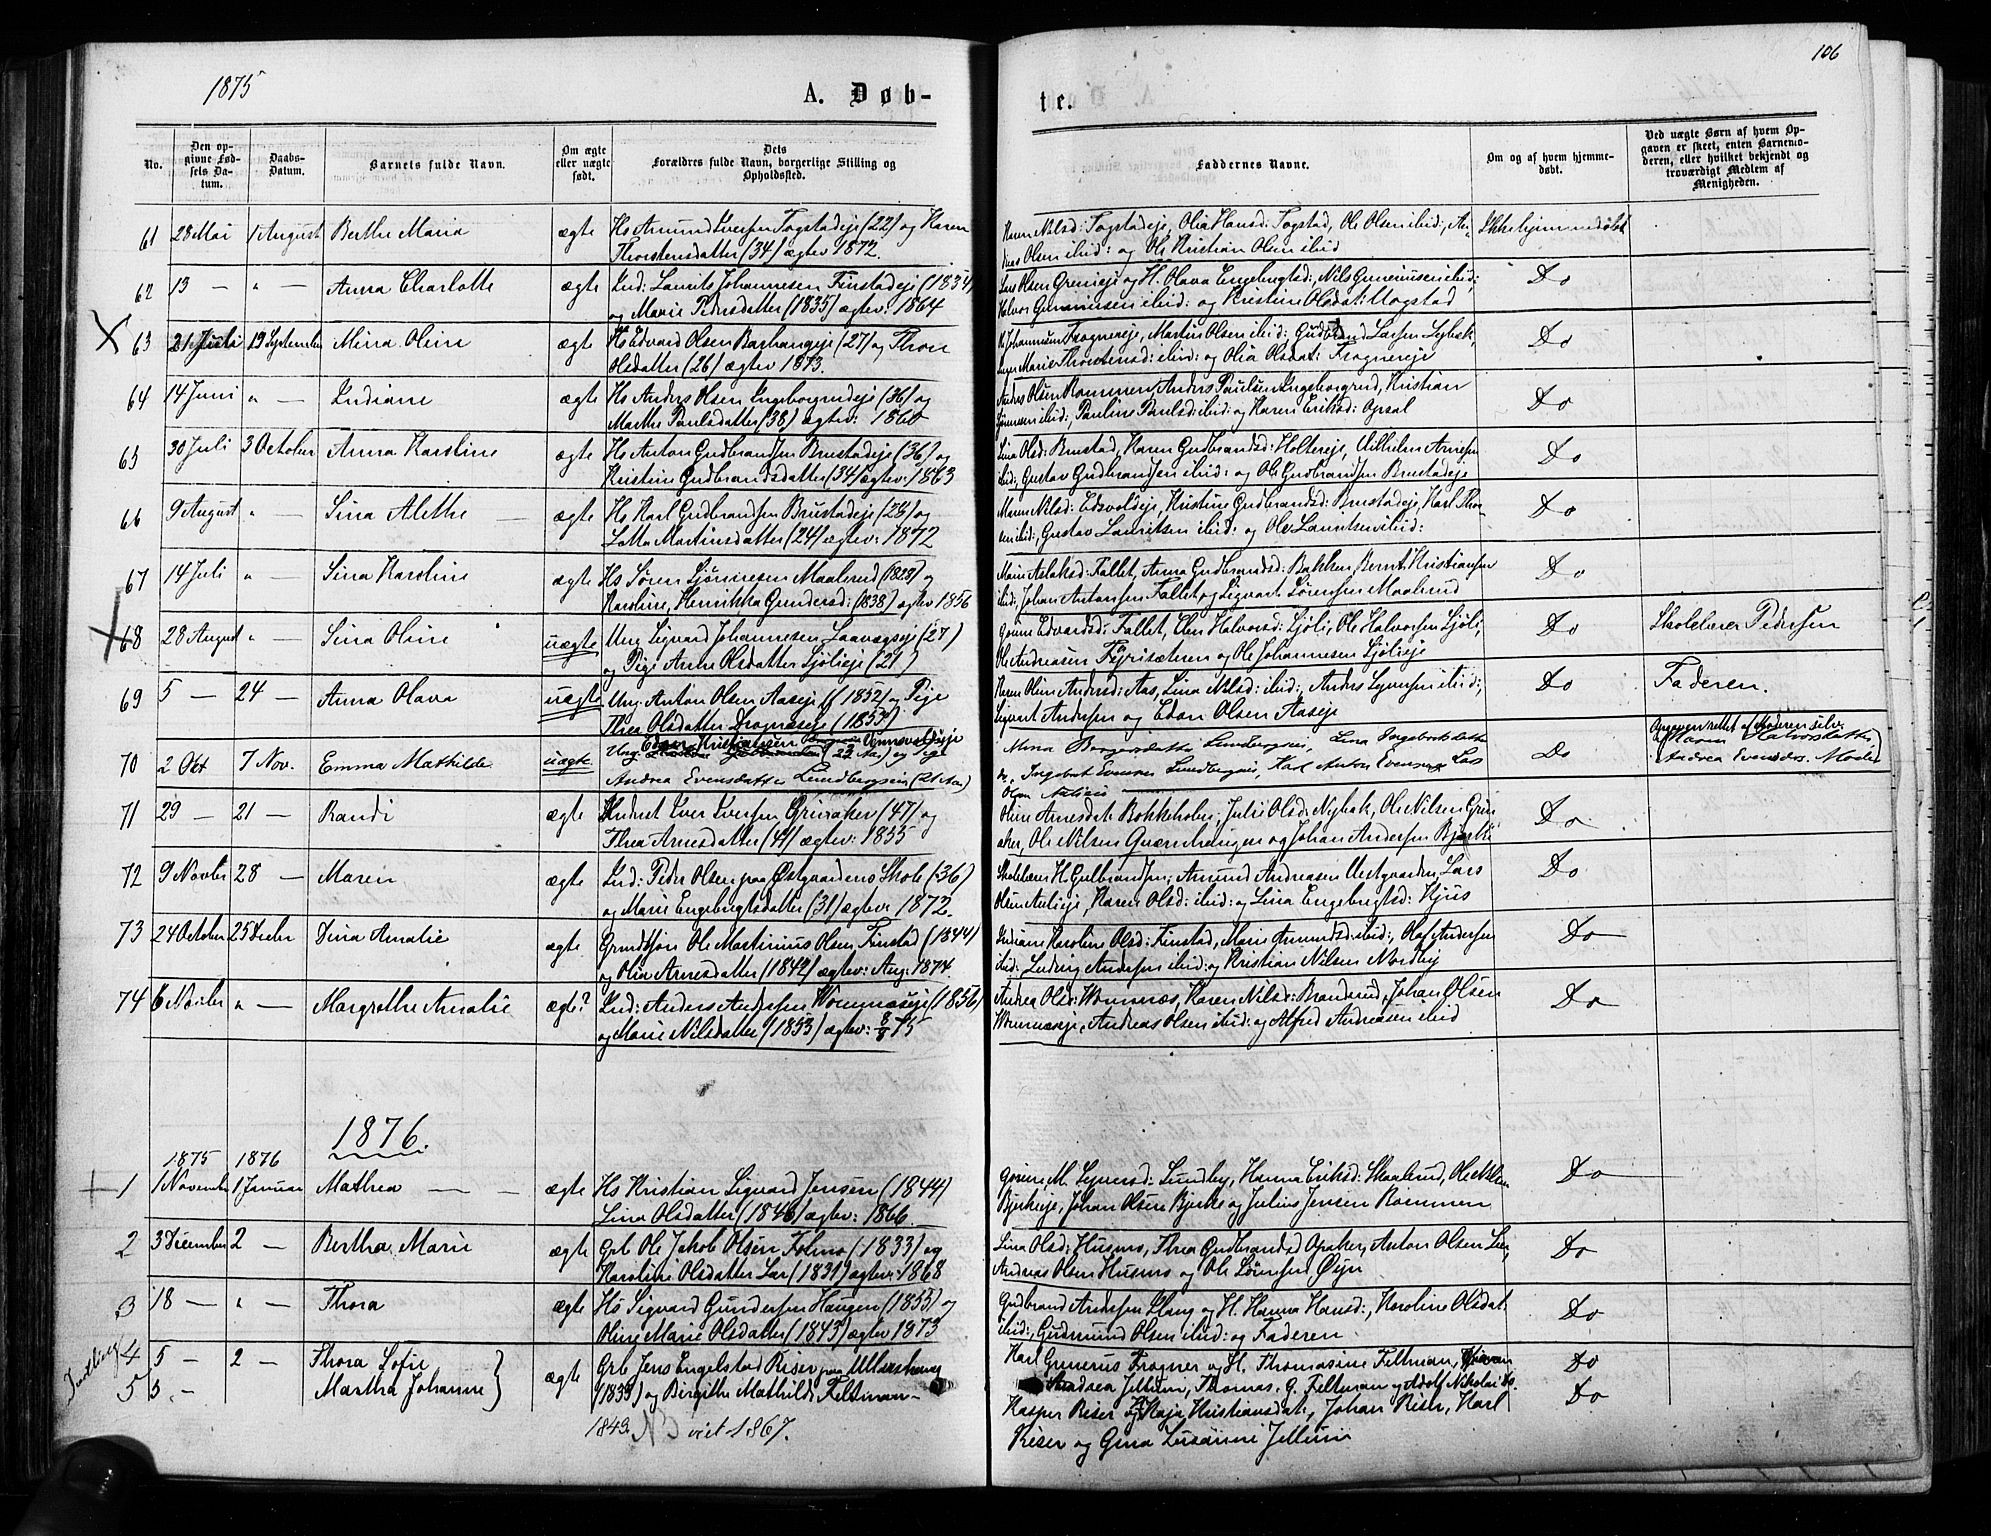 1875
A. Døb-
te.
106
No.
Den opgivne Fødsels Datum.
Daabs-Datum.
Barnets fulde Navn.
Om ægte eller uægte født.
Dets Forældres fulde Navn, borgerlige Stilling og Opholdsted.
Faddernes Navne.
Om og af hvem hjemmedøbt.
Ved uægte Børn af hvem Opgaven er skeet, enten Barnemoderen, eller hvilket bekjendt og troværdigt Medlem af Menigheden.
61 28 Mai 1 August Berthe Maria ægte Hs Amund Iversen Fogstadeje (22) og Karen
Thorstensdatter (34) ægtev 1872.
Karen Nilsd: Fogstadeje, Olia Hansd: Fogstad, Ole Olsen ibid:, An-
dreas Olsen ibid: og Ole Kristian Olsen ibid
Ikke hjemmedøbt
62 13 — " — Anna Charlotte ægte Ind: Laurits Johannesen Finstadeje (1834)
og Marie Pedersdatter (1835) ægtev: 1864
Lars Olsen Greneje og H. Olava Engebrigtsd:, Nils Gunerius­sen ibid:,
Halvor Gunerius­sen ibid: og Kristine Olsdat: Mogstad
Do
63 21 Juli 19 September Mina Oline ægte Hs Edvard Olsen Baghaugeje (27) og Thon
Olsdatter (26) ægtev 1873.
Johannesen Frognereje, Martin Olsen ibid:, Gudbrand Larsen Nybak,
Marie Thorstensd: ibid: og Olia Olsdat: Frognereje
Do
64 14 Juni " — Indiane ægte Hs Anders Olsen Engeborgrudeje (36) og
Marthe Paulsdatter (38) ægtev: 1860
Andres Olsen Rammen, Anders Paulsen Ingeborgrud, Kristian
ibid:, Pauline Paulsd: ibid: og Karen Eriksd: Opsal
Do
65 30 Juli 3 October Anna Karoline ægte Hs Anton Gudbrandsen Brustadeje (36) og
Kristine Gudbrandsdatter (34) ægtev: 1863
Lina Olsd: Brustad, Karen Gudbrandsd: Holtereje, Vilhelm Arnesen
ibid:, Gustav Gudbrandsen ibid: og Ole Gudbrandsen Brustadeje
Do
66 9 August " — Lina Alethe — ægte Hs Karl Gudbrandsen Brustadeje (28) og
Lotta Martinsdatter (24) ægtev: 1872
Maren Nilsd: Eidsvoldeje, Kristine Gudbrandsd: Brustadeje, Karl Thor-
sen ibid:, Gustav Lauritsen ibid: og Ole Lauritsen ibid:
Do
67 14 Juli " — Lina Karoline ægte Hs Søren Sjønnesen Maalerud (1828) og
Karoline Henrikka Gundersd: (1838) ægtev 1856
Marie Aslaksd: Fallet, Anna Gudbrandsd: Bakken, Bernt Kristiansen
ibid:, Johan Antonsen Fallet og Sigvart Sørensen Maalerud
Do
68 28 August " — Lina Oline uægte Ung. Sigvard Johannesen Laavegseje (27)
og Pige Anne Olsdatter Sjølieje (21)
Edvardsd: Fallet, Elen Halvorsd: Sjøli, Ole Halvorsen Sjøli,
Ole Andreasen Fyrisæteren og Ole Johannesen Sjølieje
Do Skolelærer Pedersen
69 5 — 24 — Anna Olava uægte Ung. Anton Olsen Aaseje (1852) og Pige
Thea Olsdatter Drognæseje (1853)
Karen Olin Andersd: Aas, Lina Nilsd: ibid:, Anders Syversen ibid:,
Sigvart Andersen og Edvin Olsen Aaseje
Do Faderen.
70 2 Okt 7 Nov. Emma Mathilde uægte Ung. Edvin Kristiansen (23 Aar) og Pige
Andrea Evensdatter Lundbergseie (21 Aar)
Mina Lundbergseie, Lina Ingebretsdatter
do, Ingebret Evensen Lundbergseie, Karl Anton Evensen og Lars
Olsen
Do af Moderen selv
Andrea Evensdtr. Moder
71 29 — 21 — Randi ægte Iver Iversen Griniaker (47) og
Thea Arnesdatter (41) ægtev: 1855
Oline Arnesdat: Bokkeholen, Julie Olsd: Nybak, Ole Nilsen Grini-
aker, Ole Nilsen Quernhaugen og Johan Andersen Bjerke
Do
72 9 Novbr 28 — Maren ægte Ind: Peder Olsen paa Østgaardens Skole (36)
og Marie Engebrigtsdatter (31) ægtev. 1872.
Skolelærer H. Gulbrandsen, Amund Andreasen Vestgaarden, Lars
Olsen Auliseje, Karen Olsd: ibid: og Lina Engebrigtsd: Kjus
Do
73 24 October 25 Decber Dina Amalie ægte Ole Martinius Olsen Finstad (1844)
og Olia Arnesdatter (1842) ægtev: Aug: 1874.
Indiane Karoline Olsd: Finstad, Marie Amundsd: ibid:, Olaf Andersen
ibid:, Ludvig Andersen ibid: og Kristian Nilsen Nordby
Do
74 6 Novbr " — Margrethe Amalie ægte? Ind: Anders Andersen Wormnæseje (1856)
og Marie Nilsdatter (1853) ægtev: 8/8 75
Andrea Olsd: Wormnæs, Karen Nilsd: Brandrud, Johan Olsen
Wormnæseje, Andreas Olsen ibid: og Alfred Andreasen ibid
Do
1876.
1875 1876
1 1 November 1 Januar Mathea — — ægte Hs Kristian Sigvard Jensen (1844)
Lina Olsdatter (1846) ægtev: 1866.
M. Syversd: Lundby, Hanna Eriksd: Skaalerud, Ole Nilsen
Bjerkeje, Johan Olsen Bjerke og Julius Jensen Rammen
Do
2 3 December 2 — Bertha Marie ægte Grb Ole Jakob Olsen Holmo (1833) og
Karoline Olsdatter Lier (1831) ægtev: 1868
Lina Olsd: Husmo, Thea Gudbrandsd Opaker, Anton Olsen Lier,
Andreas Olsen Husmo og Ole Sørensen Øijn
Do
3 18 — " — Thora ægte Hs Sigvard Gundersen Haugen (1853) og
Oline Marie Olsdatter (1843) ægtev 1873
Gudbrand Andersen Slang og H. Hanna Hansd:, Karoline Olsdat:
ibid:, Gudmund Olsen ibid: og Faderen
Do
Tvilling
4 5 — 2 — Thora Sofie
5 5 — Martha Johanne
ægte Grb Jens Engelstad Riser paa Ullershaug
(1833) og Birgithe Mathilde Feltman
1843. NB viet 1867.
Karl Gunerus Frogner og H. Thomasine Feltman,
Andrea Jellum, Thomas G. Feltman og Adolf Nikolai Do.
Kasper Riser og Kaja Kristiansdat:, Johan Riser, Karl
Riser og Gina Lusanne Jellum
Do
Do